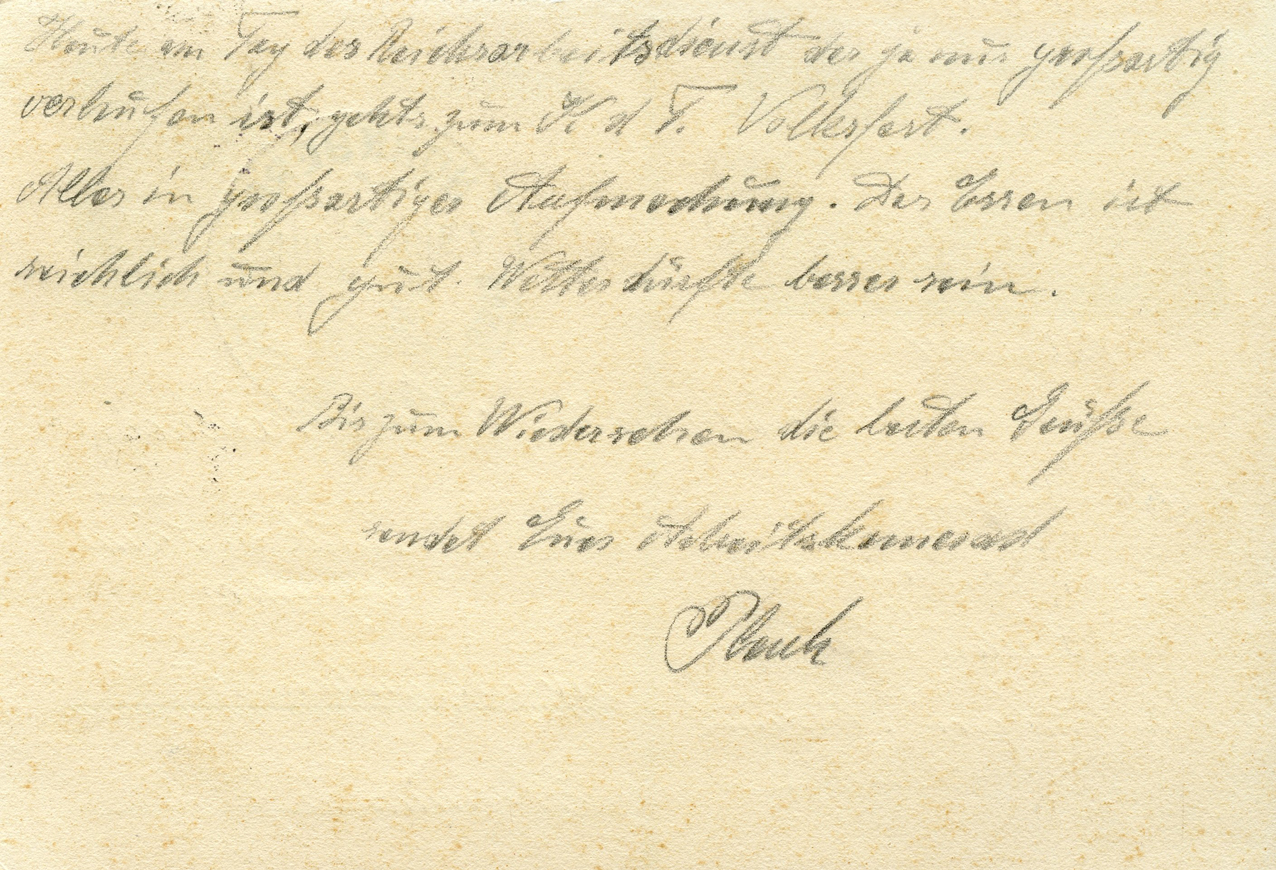 Heute am Tag des Reichsarbeitsdienst der ja nur großartig
verlaufen ist, gehts zum K d F. Volksfest.
Alles in großartiger Aufmachung. Das Essen ist
reichlich und gut. Wetter dürfte besser sein.
Bis zum Wiedersehen die besten Grüße
sendet Euer Arbeitskamerad